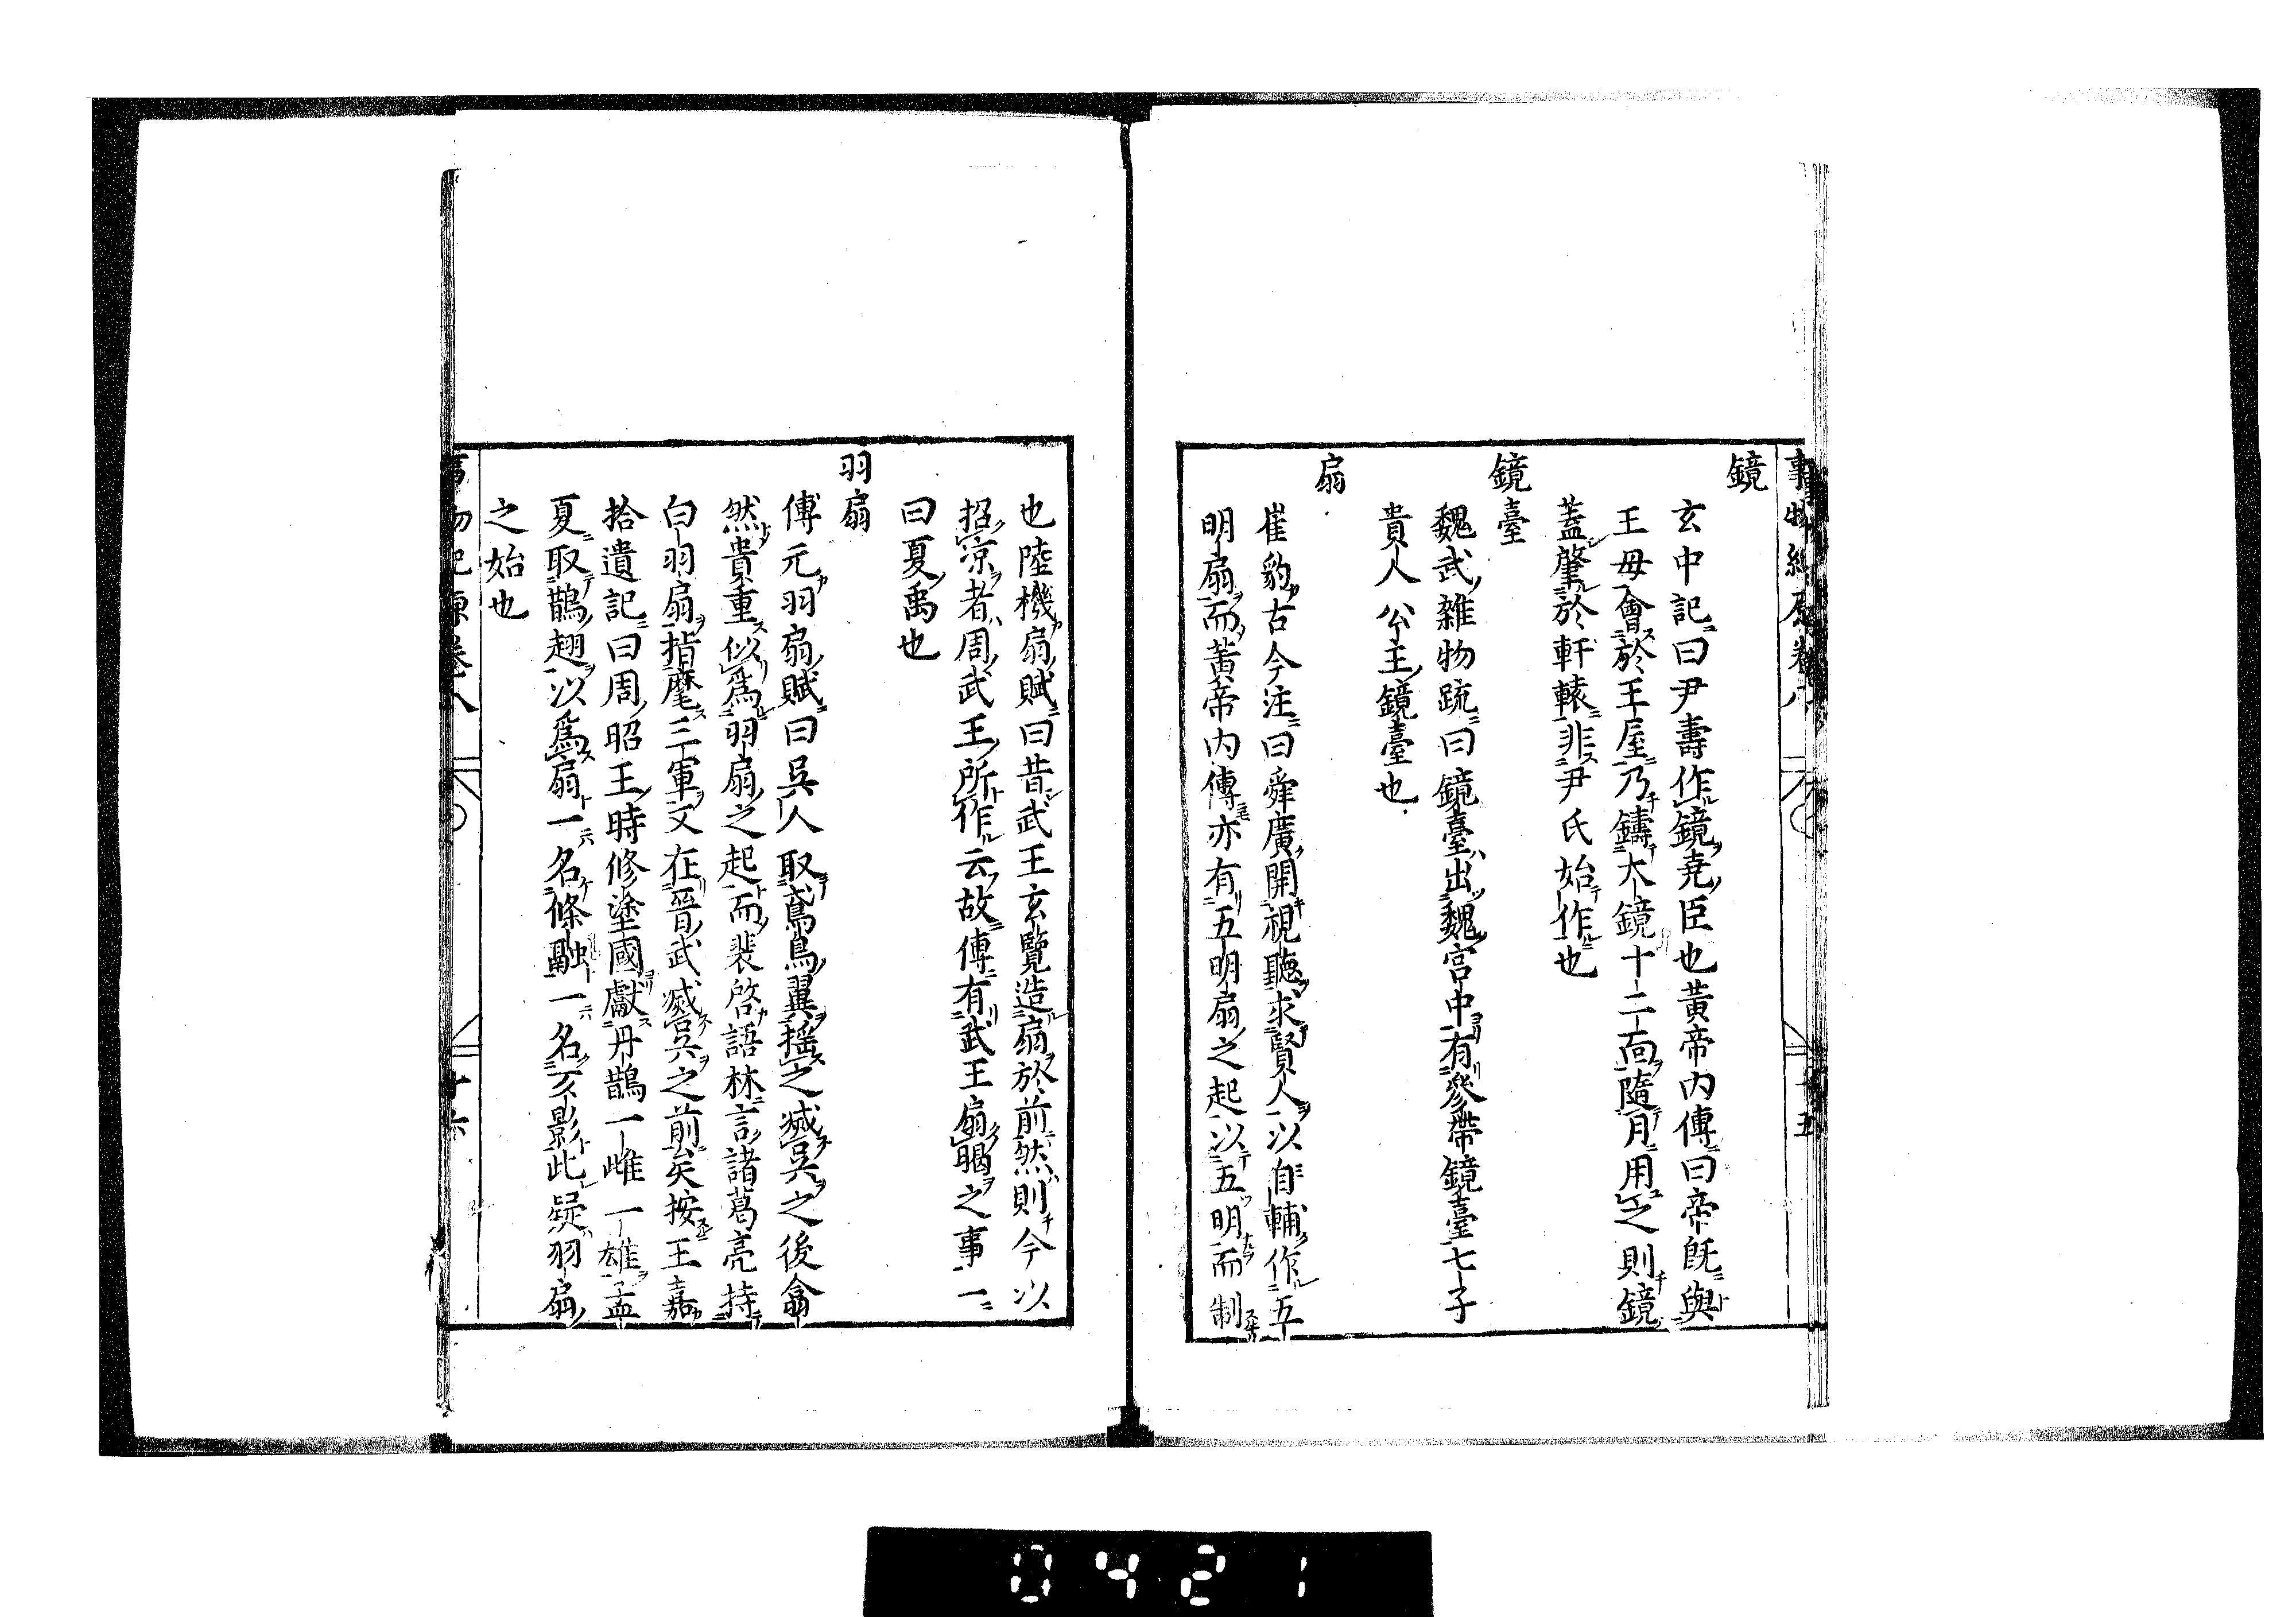 鏡
玄中記曰尹壽作鏡堯臣也黃帝內傳曰帝旣與
王母會於王屋乃鑄大鏡十二面隨月用之則鏡
蓋肇於軒轅非尹氏始作也
鏡臺
魏武雜物疏曰鏡臺出魏宮中有參帶鏡臺七子
貴人公主鏡臺也
扇
崔豹古今注曰舜廣開視聽求賢人以自輔作五
明扇而黃帝內傳亦有五明扇之起以五明而制
也陸機扇賦曰昔武王玄覽造扇於前然則今以
招凉者周武王所作云故傳有武王扇暍之事一
曰夏禹也
羽扇
傅元羽扇賦曰吳人取鳶鳥翼搖之滅吳之後翕
然貴重似爲羽扇之起而裴啓語林言諸葛亮持
白羽扇指麾三軍又在晉武滅吳之前矣按王嘉
拾遺記曰周昭王時修塗國獻丹鵲一雌一雄孟
夏取鵲翅以爲扇一名條融一名仄影此疑羽扇
之始也
事物紀原卷八
十六
0421